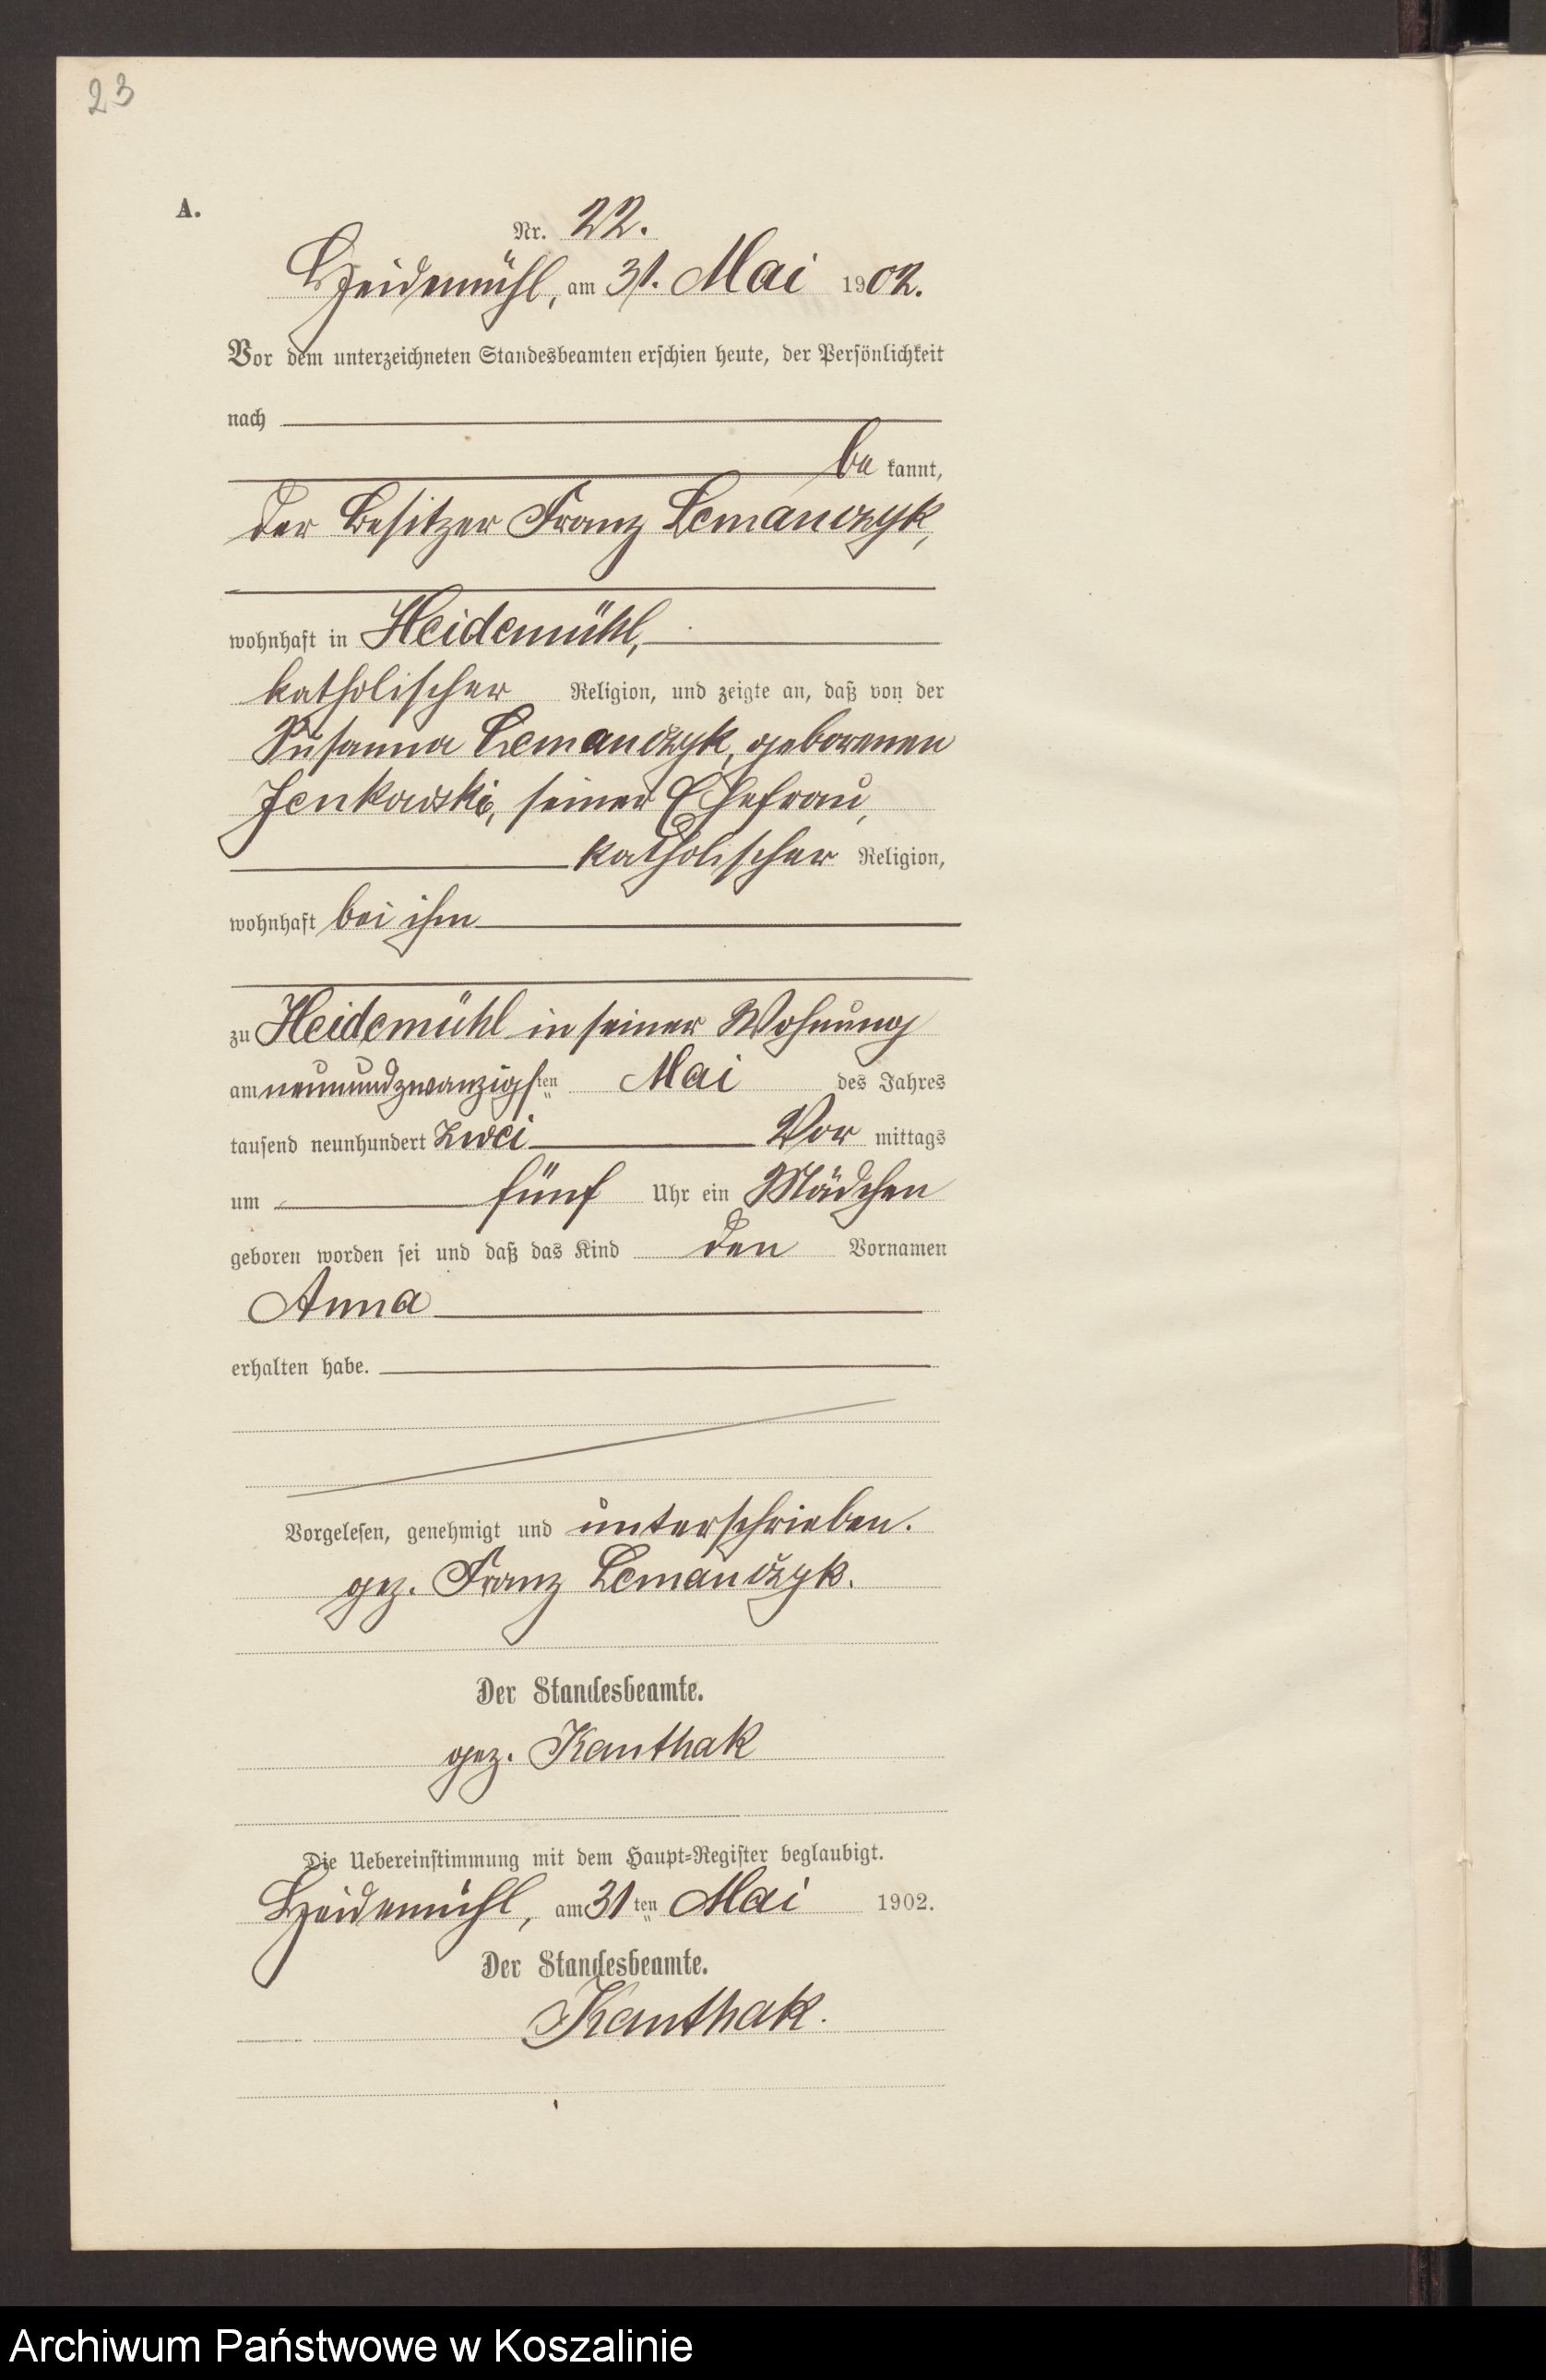 23
A.
Nr. 22.
Heidemühl, am 31. Mai 1902.
Vor dem unterzeichneten Standesbeamten erschien heute, der Persönlichkeit
nach
be kannt,
der Besitzer Franz Lemańczyk,
wohnhaft in Heidemühl,
katholischer Religion, und zeigte an, daß von der
Susanna Lemańczyk, geborenen
Jenkowski, seiner Ehefrau,
katholischer Religion,
wohnhaft bei ihm
zu Heidemühl in seiner Wohnung
am neunundzwanzigsten Mai des Jahres
tausend neunhundert zwei Vor mittags
um fünf Uhr ein Mädchen
geboren worden sei und daß das Kind den Vornamen
Anna
erhalten habe.
Vorgelesen, genehmigt und unterschrieben.
gez. Franz Lemańczyk.
Der Standesbeamte.
gez. Kanthak
Die Uebereinstimmung mit dem Haupt-Register beglaubigt.
Heidemühl, am 31ten Mai 1902.
Der Standesbeamte.
Kanthak.
Archiwum Państwowe w Koszalinie